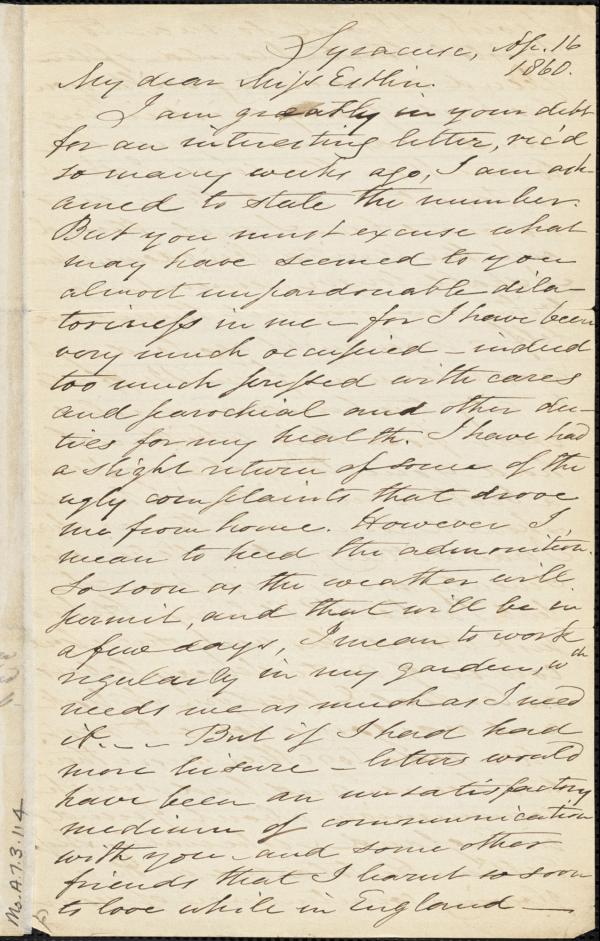 Syracuse, Ap. 16
1860.
My dear Miss Estlin.
I am greatly in your debt
for an interesting letter, rec'd
so many weeks ago, I am ash-
amed to state the number.
But you must excuse what
may have seemed to you
almost unpardonable dila-
toriness in me – for I have been
very much occupied – indeed
too much pressed with cares
and parochial and other du-
ties for my health. I have had
a slight return of some of the
ugly complaints that drove
me from home. However I
mean to heed the admonition.
So soon as the weather will
permit, and that will be in
a few days, I mean to work
regularly in my garden, wch
needs me as much as I need
it. – – But if I had had
more leisure – letters would
have been an unsatisfactory
medium of communication
with you – and some other
friends that I learnt so soon
to love while in England –
Ms. A. 7. 3. 114